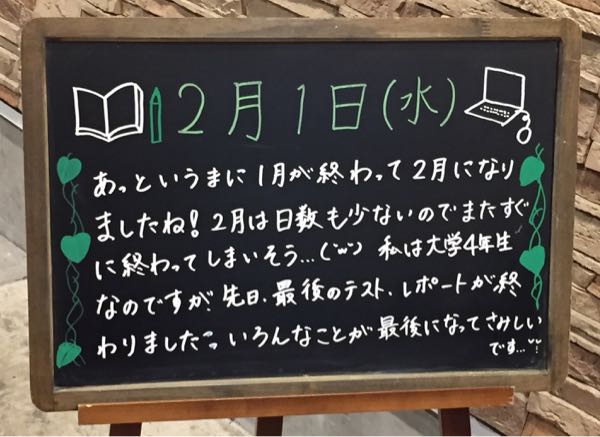 2月1日(水)
あっというまに1月が終わって2月になり
ましたね!2月は日数も少ないのでまたすぐ
に終わってしまいそう…(´ω`) 私は大学4年生
なのですが、先日、最後のテスト、レポートが終
わりましたっ いろんなことが最後になってさみしい
です…